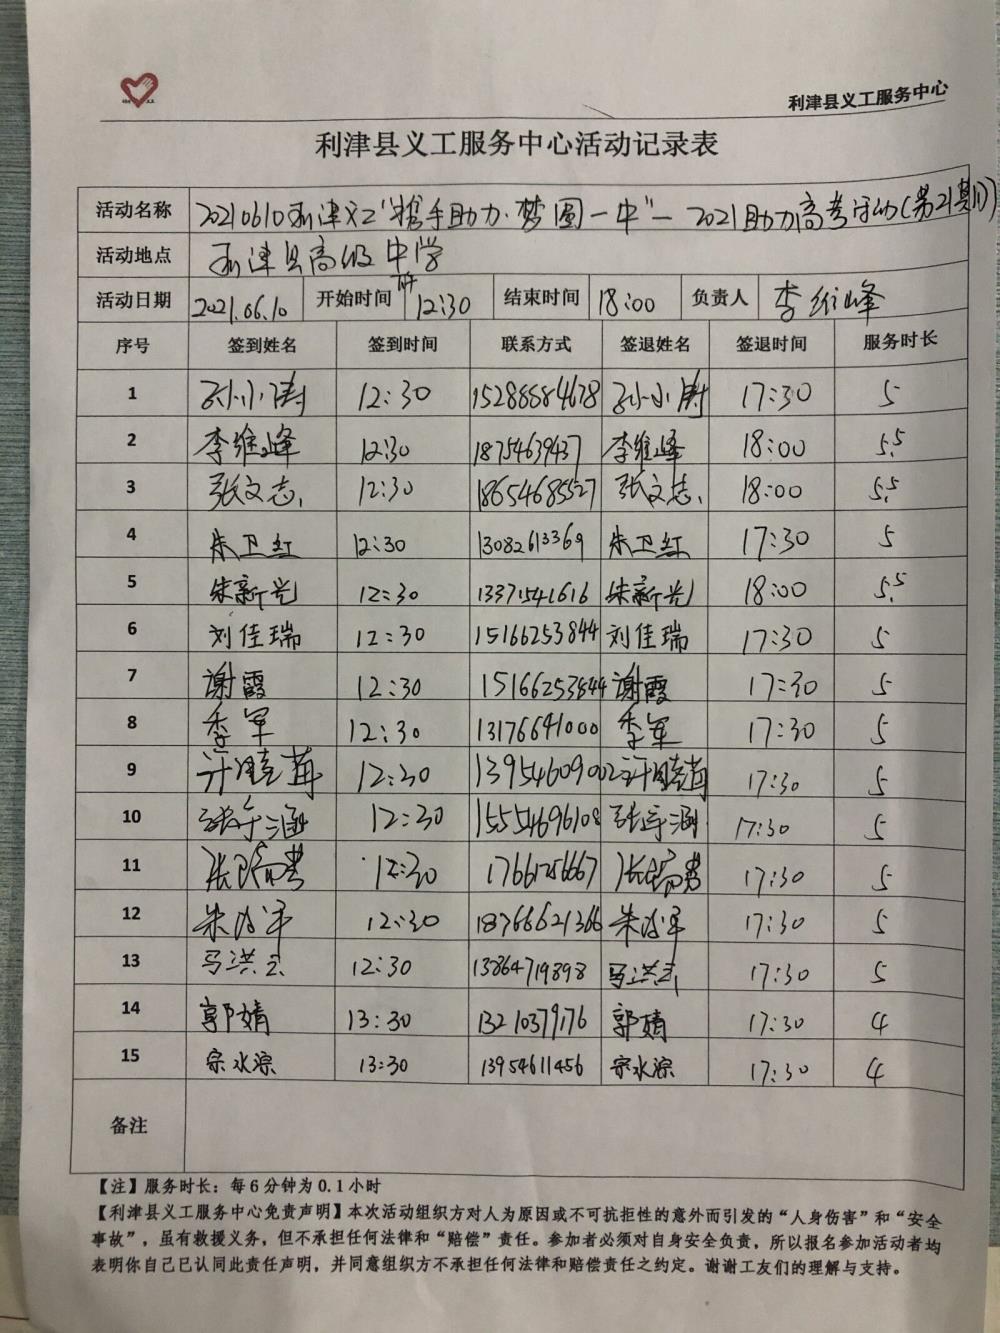 利津县义工服务中心
利津县义工服务中心活动记录表
活动名称 20210610利津义工"携手助力·梦圆一中"— 2021助力高考活动(第21期)
活动地点 利津县高级中学
活动日期 2021.06.10 开始时间 12:30 结束时间 18:00 负责人 李维峰
序号 签到姓名 签到时间 联系方式 签退姓名 签退时间 服务时长
1 孙小涛 12:30 15288884678 孙小涛 17:30 5
2 李维峰 12:30 18754639437 李维峰 18:00 5.5
3 张文志 12:30 18654685527 张文志 18:00 5.5
4 朱卫红 12:30 13082613369 朱卫红 17:30 5
5 朱新光 12:30 13371541616 朱新光 18:00 5.5
6 刘佳瑞 12:30 15166253844 刘佳瑞 17:30 5
7 谢霞 12:30 15166253844 谢霞 17:30 5
8 季军 12:30 13176641000 季军 17:30 5
9 12:30 17:30 5
10 12:30 15554696108 17:30 5
11 12:30 17:30 5
12 12:30 18766621366 17:30 5
13 12:30 13864719898 17:30 5
14 郭婧 13:30 13210379176 郭婧 17:30 4
15 宗水淙 13:30 13954611456 宗水淙 17:30 4
备注
【注】服务时长：每6分钟为0.1小时
【利津县义工服务中心免责声明】本次活动组织方对人为原因或不可抗拒性的意外而引发的“人身伤害”和“安全
事故”，虽有救援义务，但不承担任何法律和“赔偿”责任。参加者必须对自身安全负责，所以报名参加活动者均
表明你自己已认同此责任声明，并同意组织方不承担任何法律和赔偿责任之约定。谢谢工友们的理解与支持。